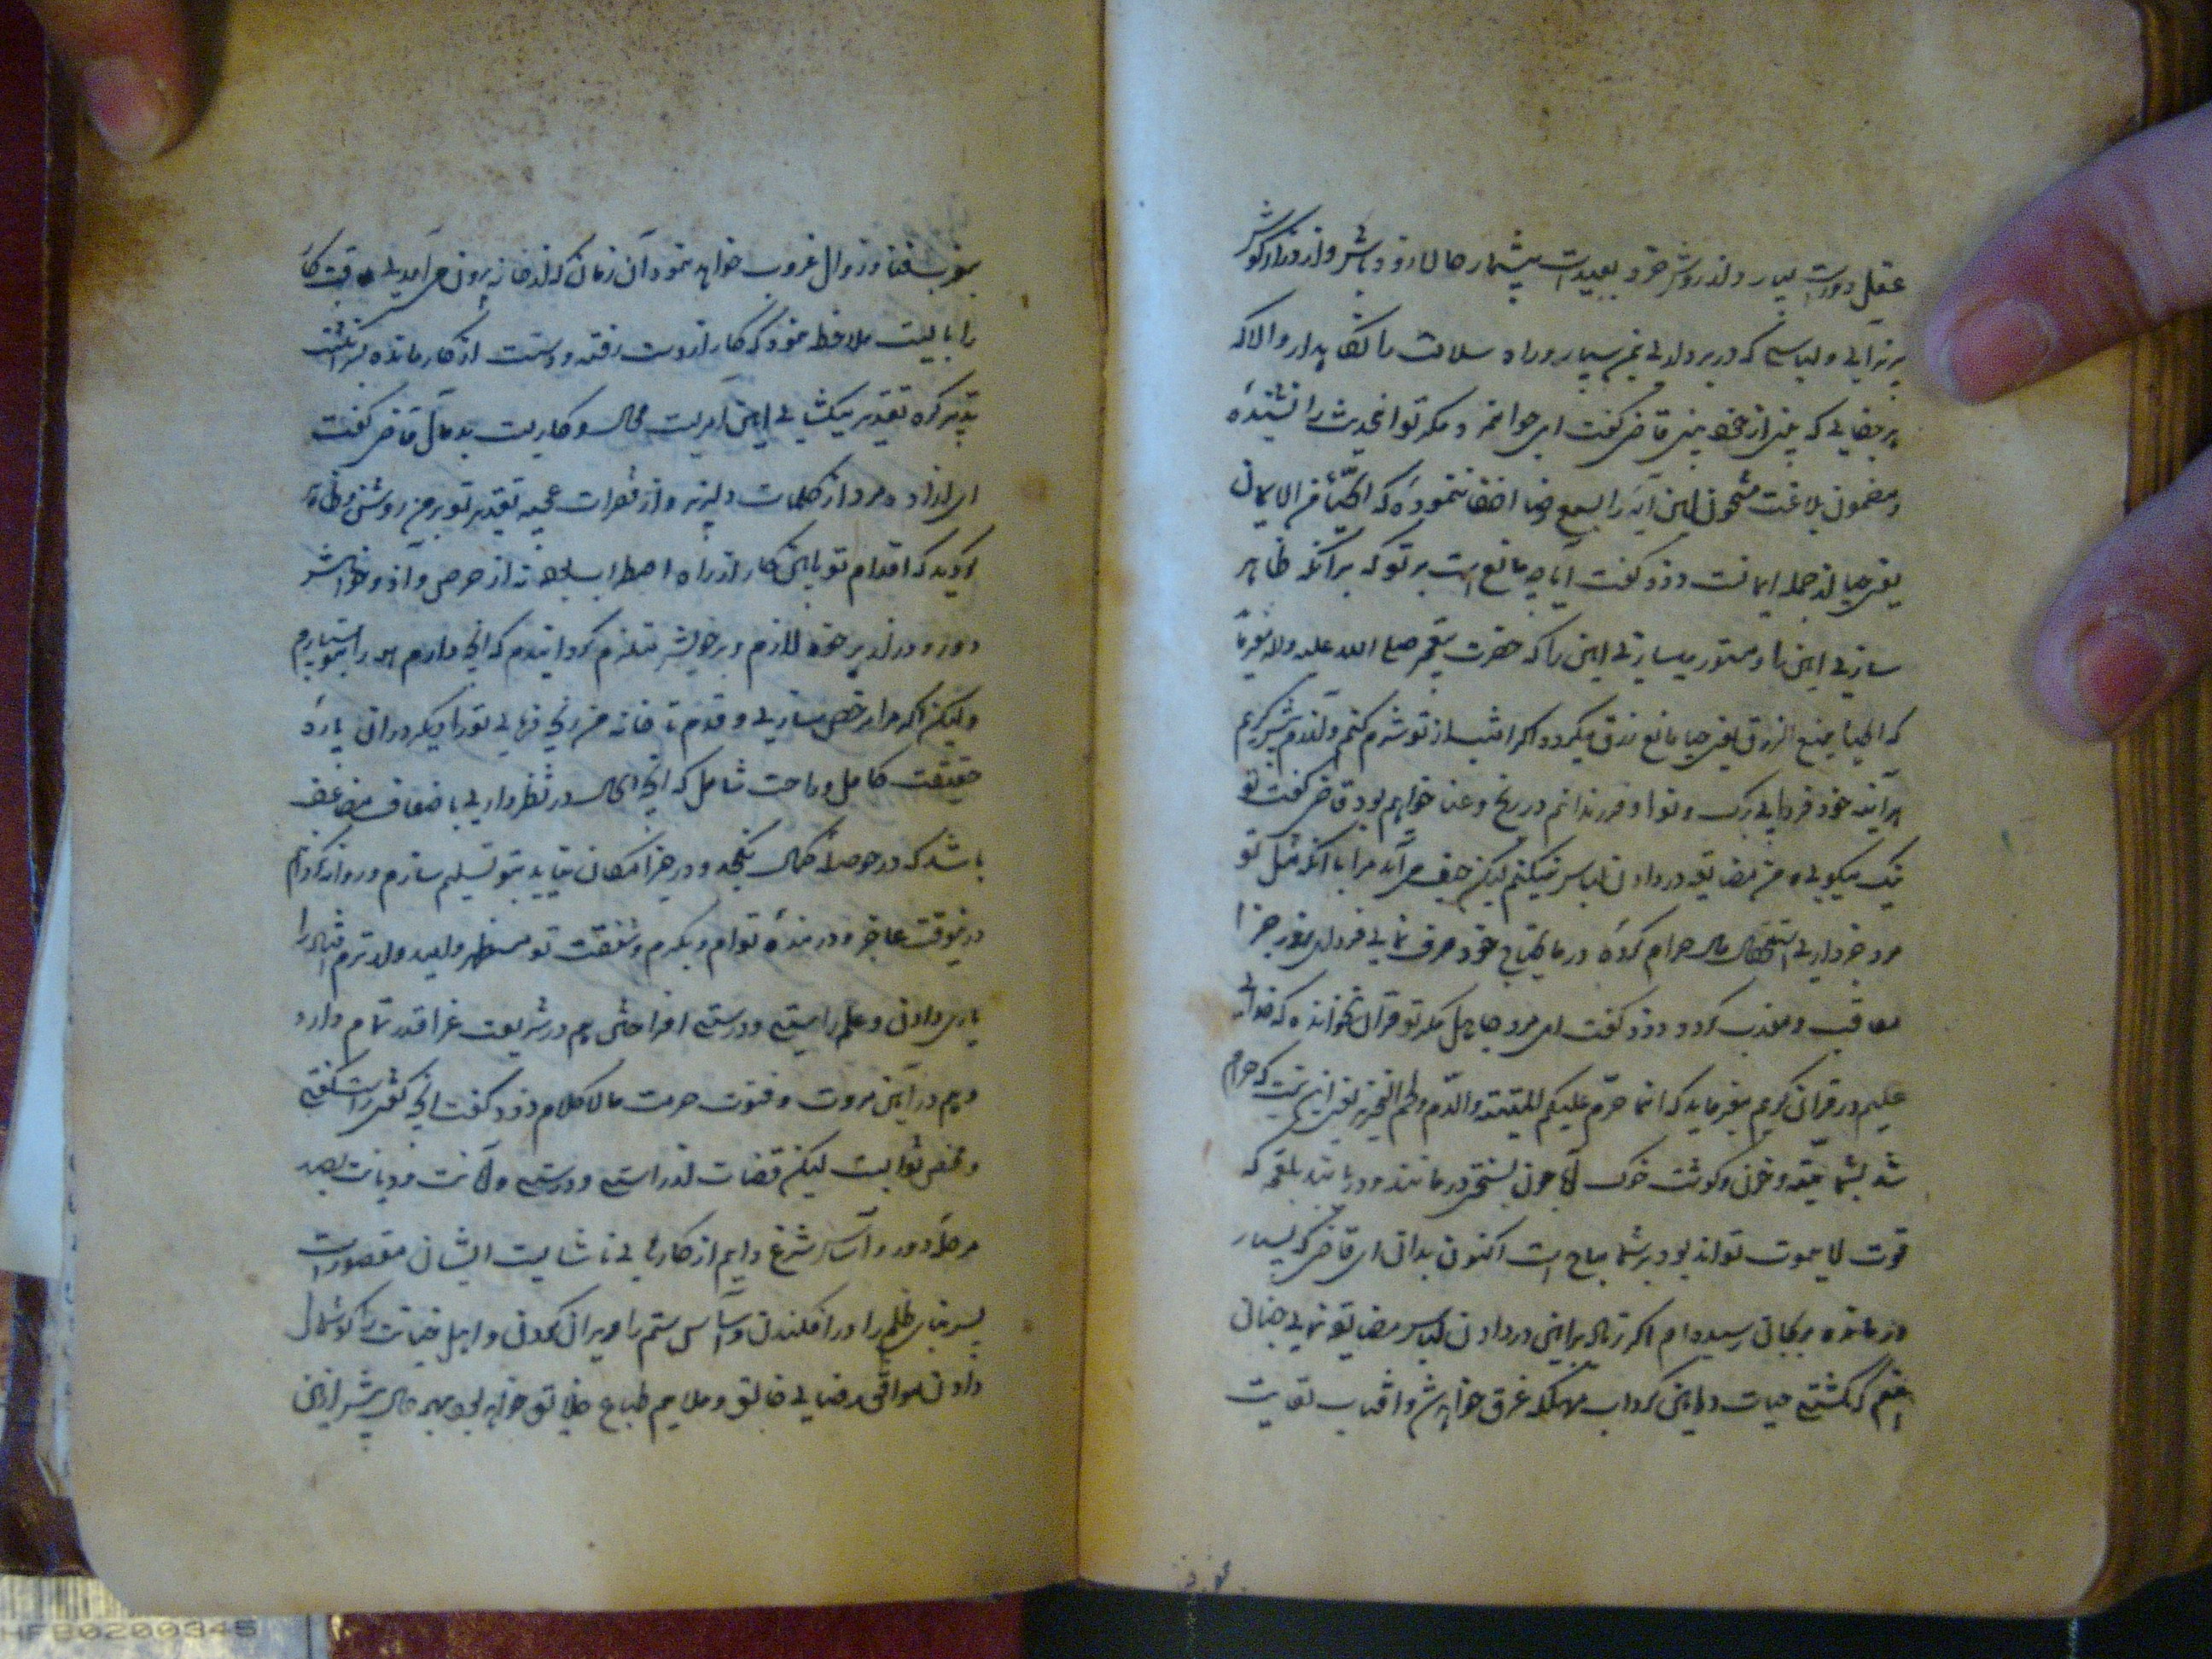 عقل دورست بسیار و از روش خرد بعیدست بیشمار حالا زود باش و از در گوش
برنه آیی و لباسی که در بر داری بمن سپار و راه سلامت را نگاه دار والا که
هر جفایی که بینی از خود بینی قاضی گفت ای جوانمرد مکر تو این حدیث را نشنیدهٔ
و مضمون بلاغت مشحون این آیه را بسمع رضا اصغا ننموده که الحیاء من الایمان
یعنی حیا از جمله ایمانست دزد گفت آیا چه مانع است بر تو که بر آنکه ظاهر
سازی این را و مستور میسازی این را که حضرت پیغمبر صلی الله علیه و آله میفرماید
که الحیاء یمنع الرزق یعنی حیا مانع رزق میکردد اگر امشب از تو شرم کنم و آزرم پیش گیرم
هر آینه خود فردا بی برک و نوا و فرزندانم در رنج و عنا خواهم بود قاضی گفت تو
نیک میگویی و من مضایقه در دادن لباس نمیکنم لیکن حیف می آید مرا با آنکه مثل تو
مرد خرداری استحلال مال حرام کرده در ما یحتاج خود صرف نمایی فردا بروز جزا
معاقب و معذب کردد دزد گفت ای مرد جاهل مکر تو قرآن نخوانده که خدای
علیم در قرآن کریم میفرماید که انما حرم علیکم المیتة والدم و لحم الخنزیر یعنی این نیست که حرام
شد بشما میته و خون و گوشت خوک اما چون بسختی درمانند و درمانند بلقمه که
قوت لایموت تواند بود بر شما مباح است اکنون بدان ای قاضی که بسیار
درمانده و بجان رسیده ام اگر زیاده بر این در دادن لباس مضایقه نمایی چنان
افتم که کشتی حیات در این گرداب مهلکه غرق خواهد شد و آفتاب بقایت
بمغرب فنا و زوال غروب خواهد نمود آن زمان که از خانه بیرون می آمدی عاقبت کار
را بایست ملاحظه نمود که کار از دست رفته و دست از کار مانده سر انگشت
تدبیر گره تقدیر نیکشاید این آمریست محال و کاریست بد مآل قاضی گفت
ای آزاده مرد از کلمات دلپذیر و از فقرات عجیبه تقدیر تو بر من روشن و ظاهر
گردید که اقدام تو باین کار از راه اضطرار بوده نه از حرص و آز و خواهش
دور و دراز بر خود لازم و بر خویش متلازم گردانیدم که آنچه دارم همه را بتو سپارم
و لیکن اگر مرا مرخص سازی و قدم تا خانه من رنجه فرمایی تو را دیگر در آن پاره
حقیقت کامل و راحت شامل که آنچه الحال در نظر داری باضعاف مضاعف
باشد که در حوصله کمال نگنجد و در حیز امکان نیاید بتو تسلیم سازم و روانه گردانم
درینوقت عاجز و درمنده توام و بکرم و شفقت تو مستظهر و امیدوارم
یاری دادن و علم راستی و درستی افراختن هم در شریعت غرا قدر تمام دارد
و هم در آیین مروت و فتوت حرمت مالا کلام دزد گفت آنچه گفتی راست گفتی
و محض ثوابست لیکن قضات از راستی و درستی و امانت و دیانت بصد
مرحله دور و آسایش شرع دایم از کارهای ناشایست ایشان مقصورست
پس بنای ظلم را در افکندن و اساس ستم را ویران کردن و اهل خیانت را گوشمال
دادن موافق رضای خالق و ملایم طباع خلایق خواهد بود بهر حال پیش از این